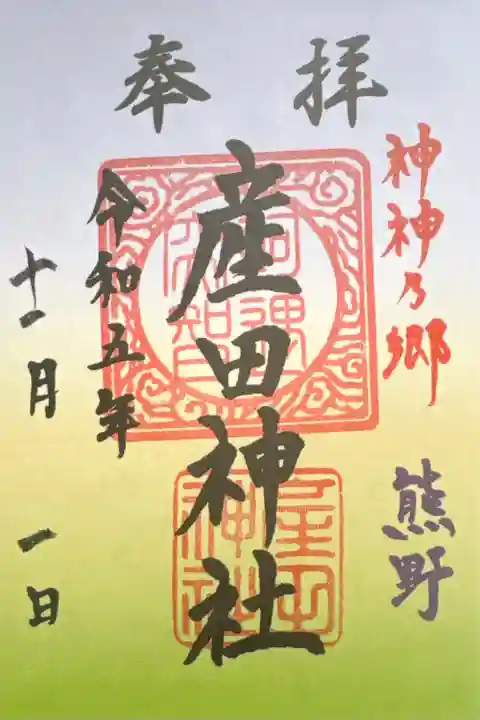 奉拝
神神乃郷
熊野
産田神社
令和五年
十一月一日
産田
神社